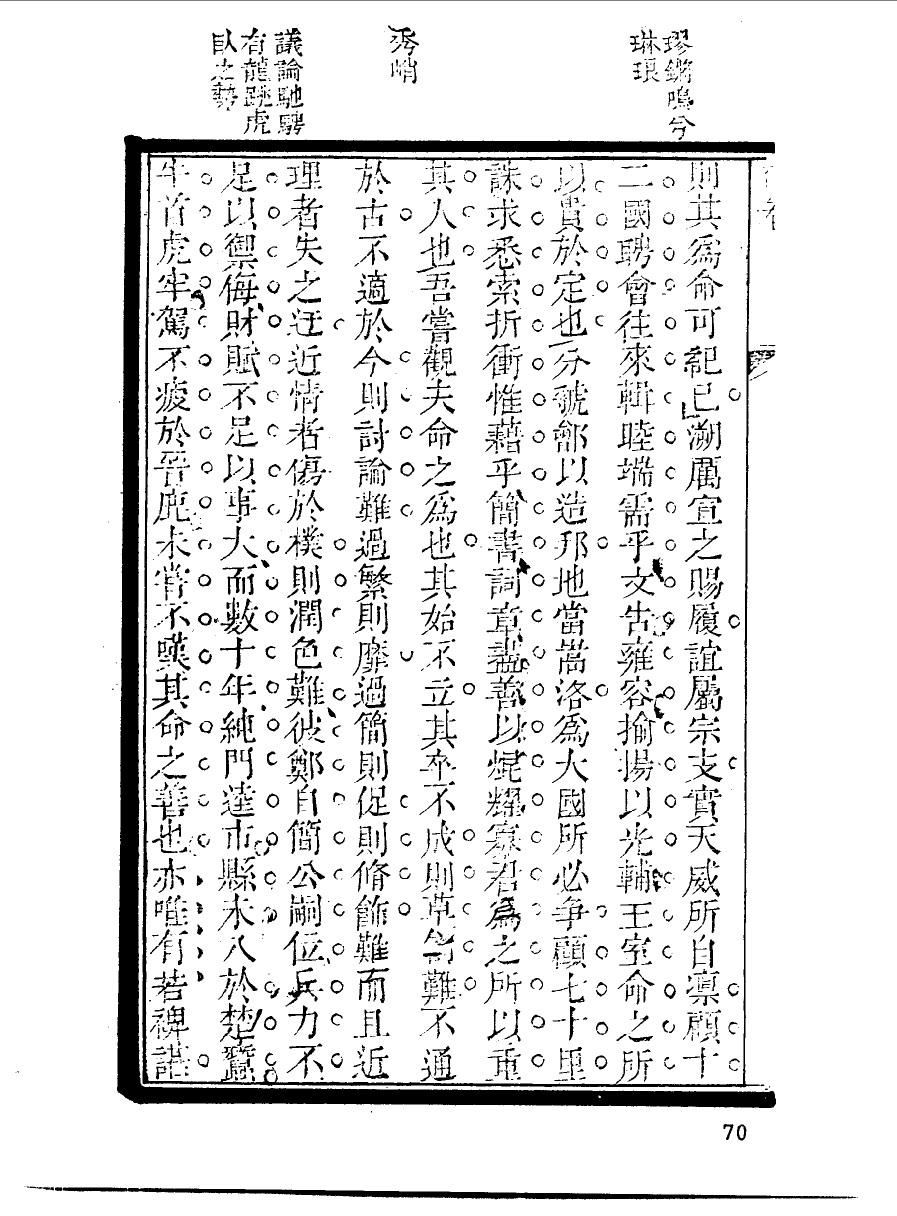 璆鏘鳴兮
琳琅
秀峭
議論馳騁
有龍跳虎
臥之勢
則其為命可紀已溯厲宣之賜履誼屬宗支實天威所自凜顧十
二國聘會往來輯睦端需乎文告雍容揄揚以光輔王室命之所
以貴於定也分虢鄶以造邦地當嵩洛為大國所必爭顧七十里
誅求悉索折衝惟藉乎簡書詞章盡善以焜耀寡君為之所以重
其人也吾嘗觀夫命之為也其始不立其卒不成則草創難不通
於古不適於今則討論難過繁則靡過簡則促則脩飾難而且近
理者失之迂近情者傷於樸則潤色難彼鄭自簡公嗣位兵力不
足以禦侮財賦不足以事大而數十年純門逵市縣未入於楚蠶
牛首虎牢駕不疲於晉鹿未嘗不嘆其命之善也亦唯有若裨諶
70